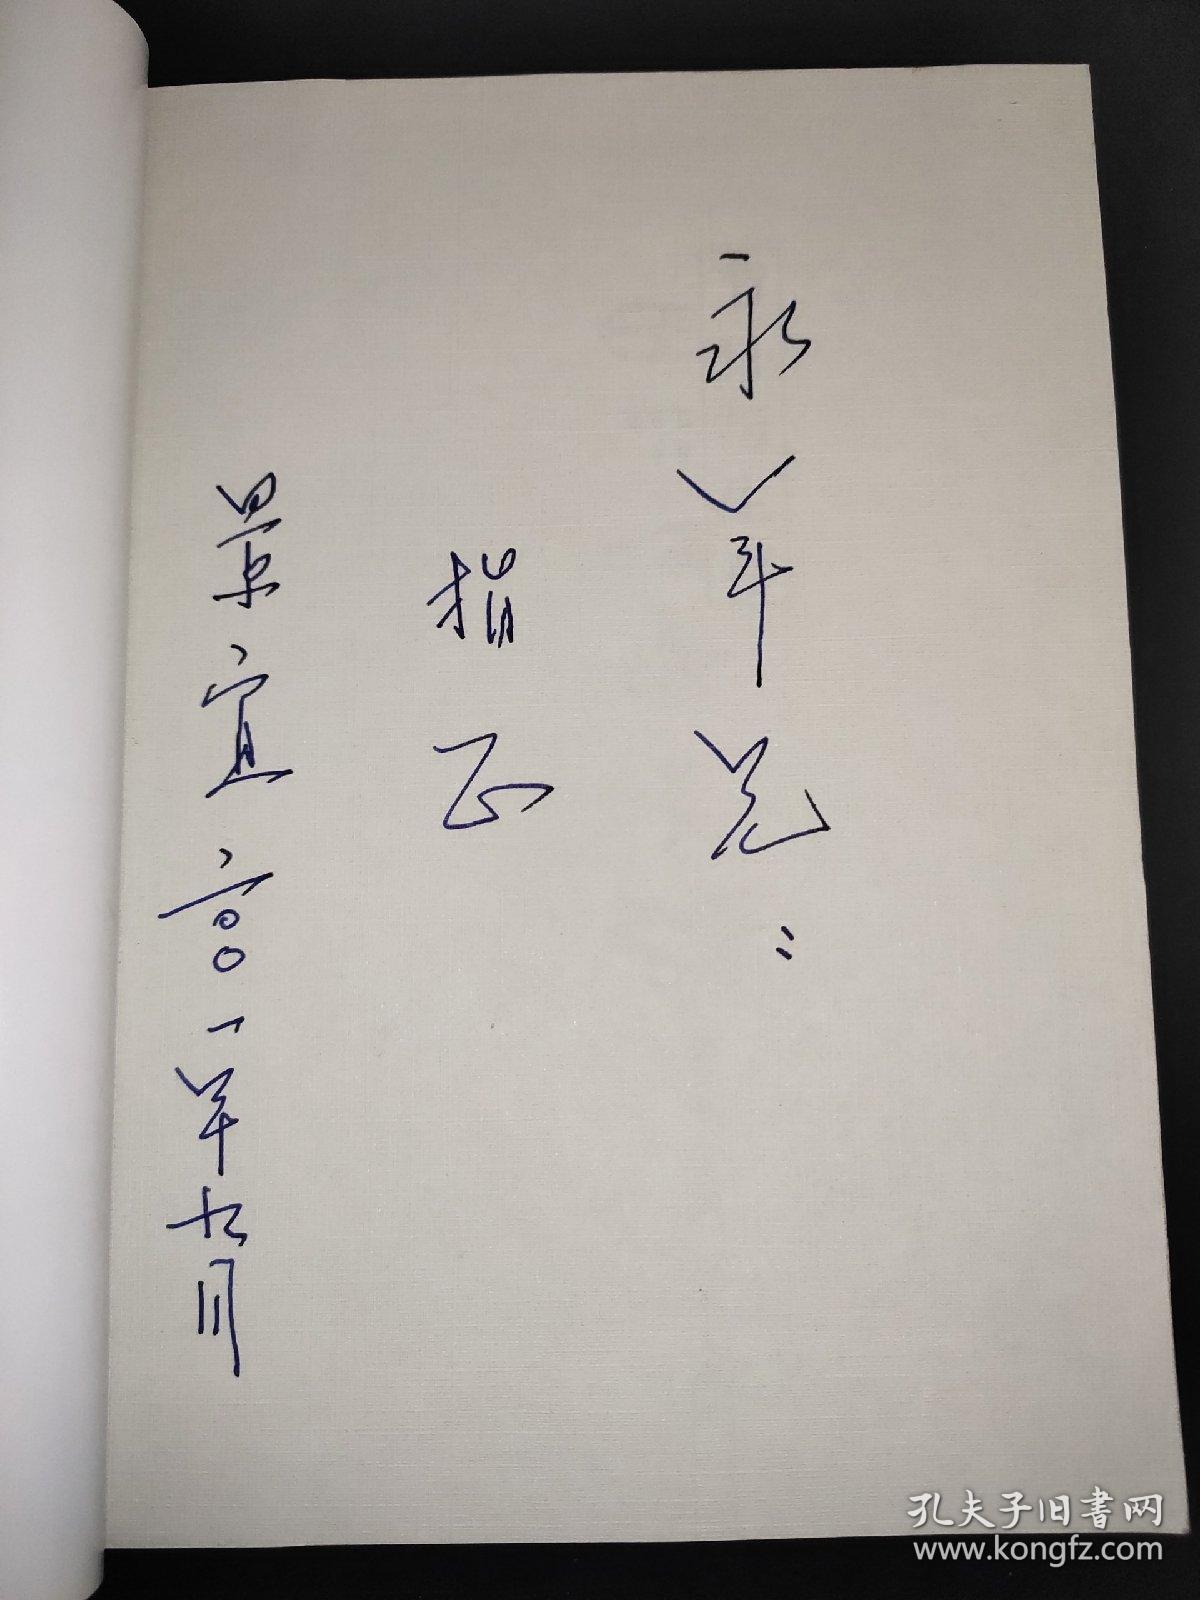 永年兄：
指正
景宜 二〇〇一年九月
孔夫子旧書网
www.kongfz.com